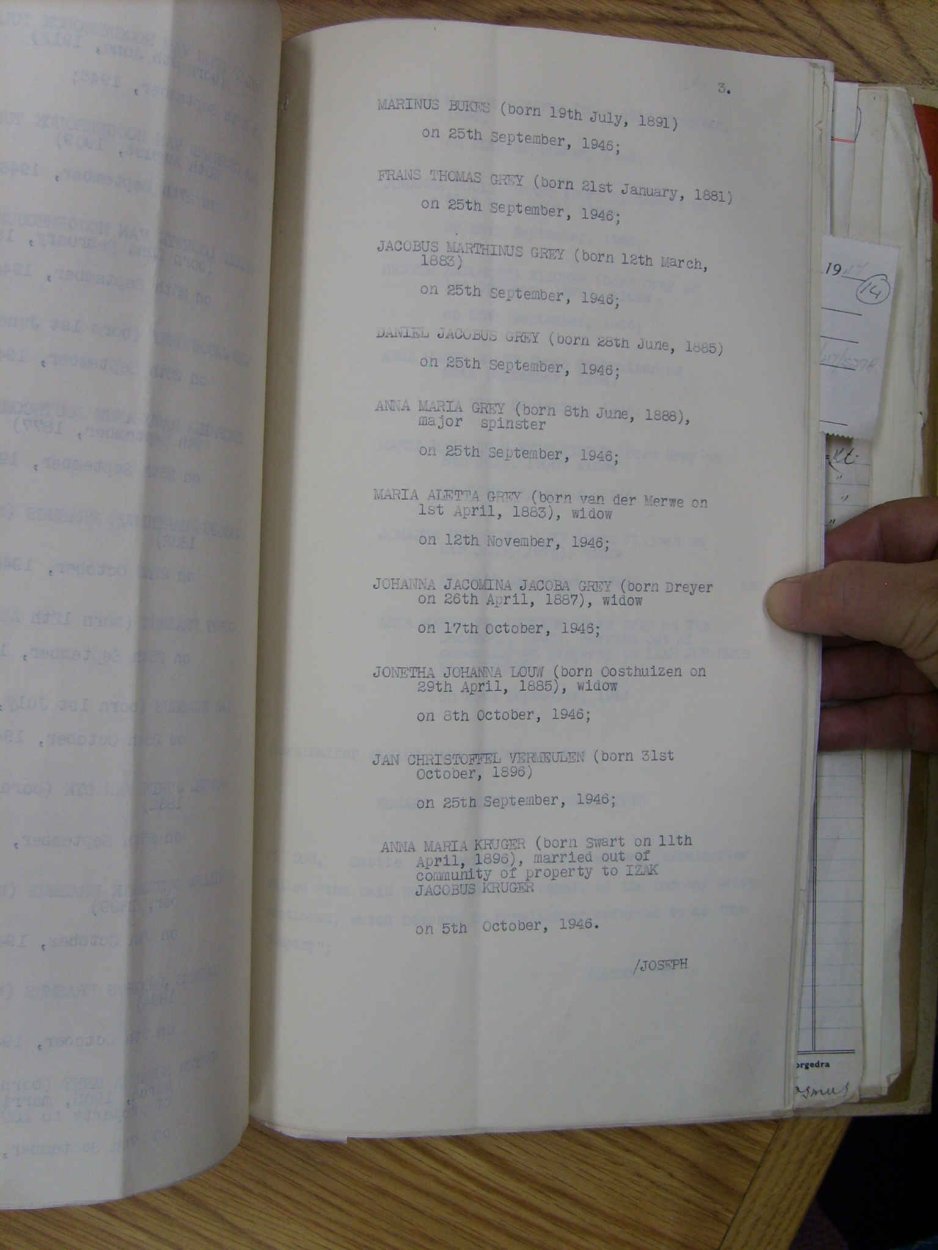 3.
MARINUS BUKES (born 19th July, 1891)
on 25th September, 1946;
FRANS THOMAS GREY (born 21st January, 1881)
on 25th September, 1946;
JACOBUS MARTHINUS GREY (born 12th March,
1883)
on 25th September, 1946;
DANIEL JACOBUS GREY (born 28th June, 1885)
on 25th September, 1946;
ANNA MARIA GREY (born 8th June, 1888),
major spinster
on 25th September, 1946;
MARIA ALETTA GREY (born van der Merwe on
1st April, 1883), widow
on 12th November, 1946;
JOHANNA JACOMINA JACOBA GREY (born Dreyer
on 26th April, 1887), widow
on 17th October, 1946;
JONETHA JOHANNA LOUW (born Oosthuizen on
29th April, 1885), widow
on 8th October, 1946;
JAN CHRISTOFFEL VERMEULEN (born 31st
October, 1896)
on 25th September, 1946;
ANNA MARIA KRUGER (born Swart on 11th
April, 1896), married out of
community of property to IZAK
JACOBUS KRUGER
on 5th October, 1946.
/JOSEPH
19
14
orgedra